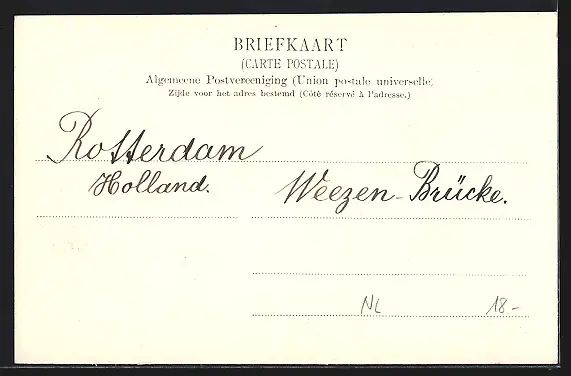 BRIEFKAART
(CARTE POSTALE)
Algemeene Postvereeniging (Union postale universelle)
Zijde voor het adres bestemd (Côté réservé à l'adresse.)
Rotterdam
Holland.
Weezen-Brücke.
NL 18-